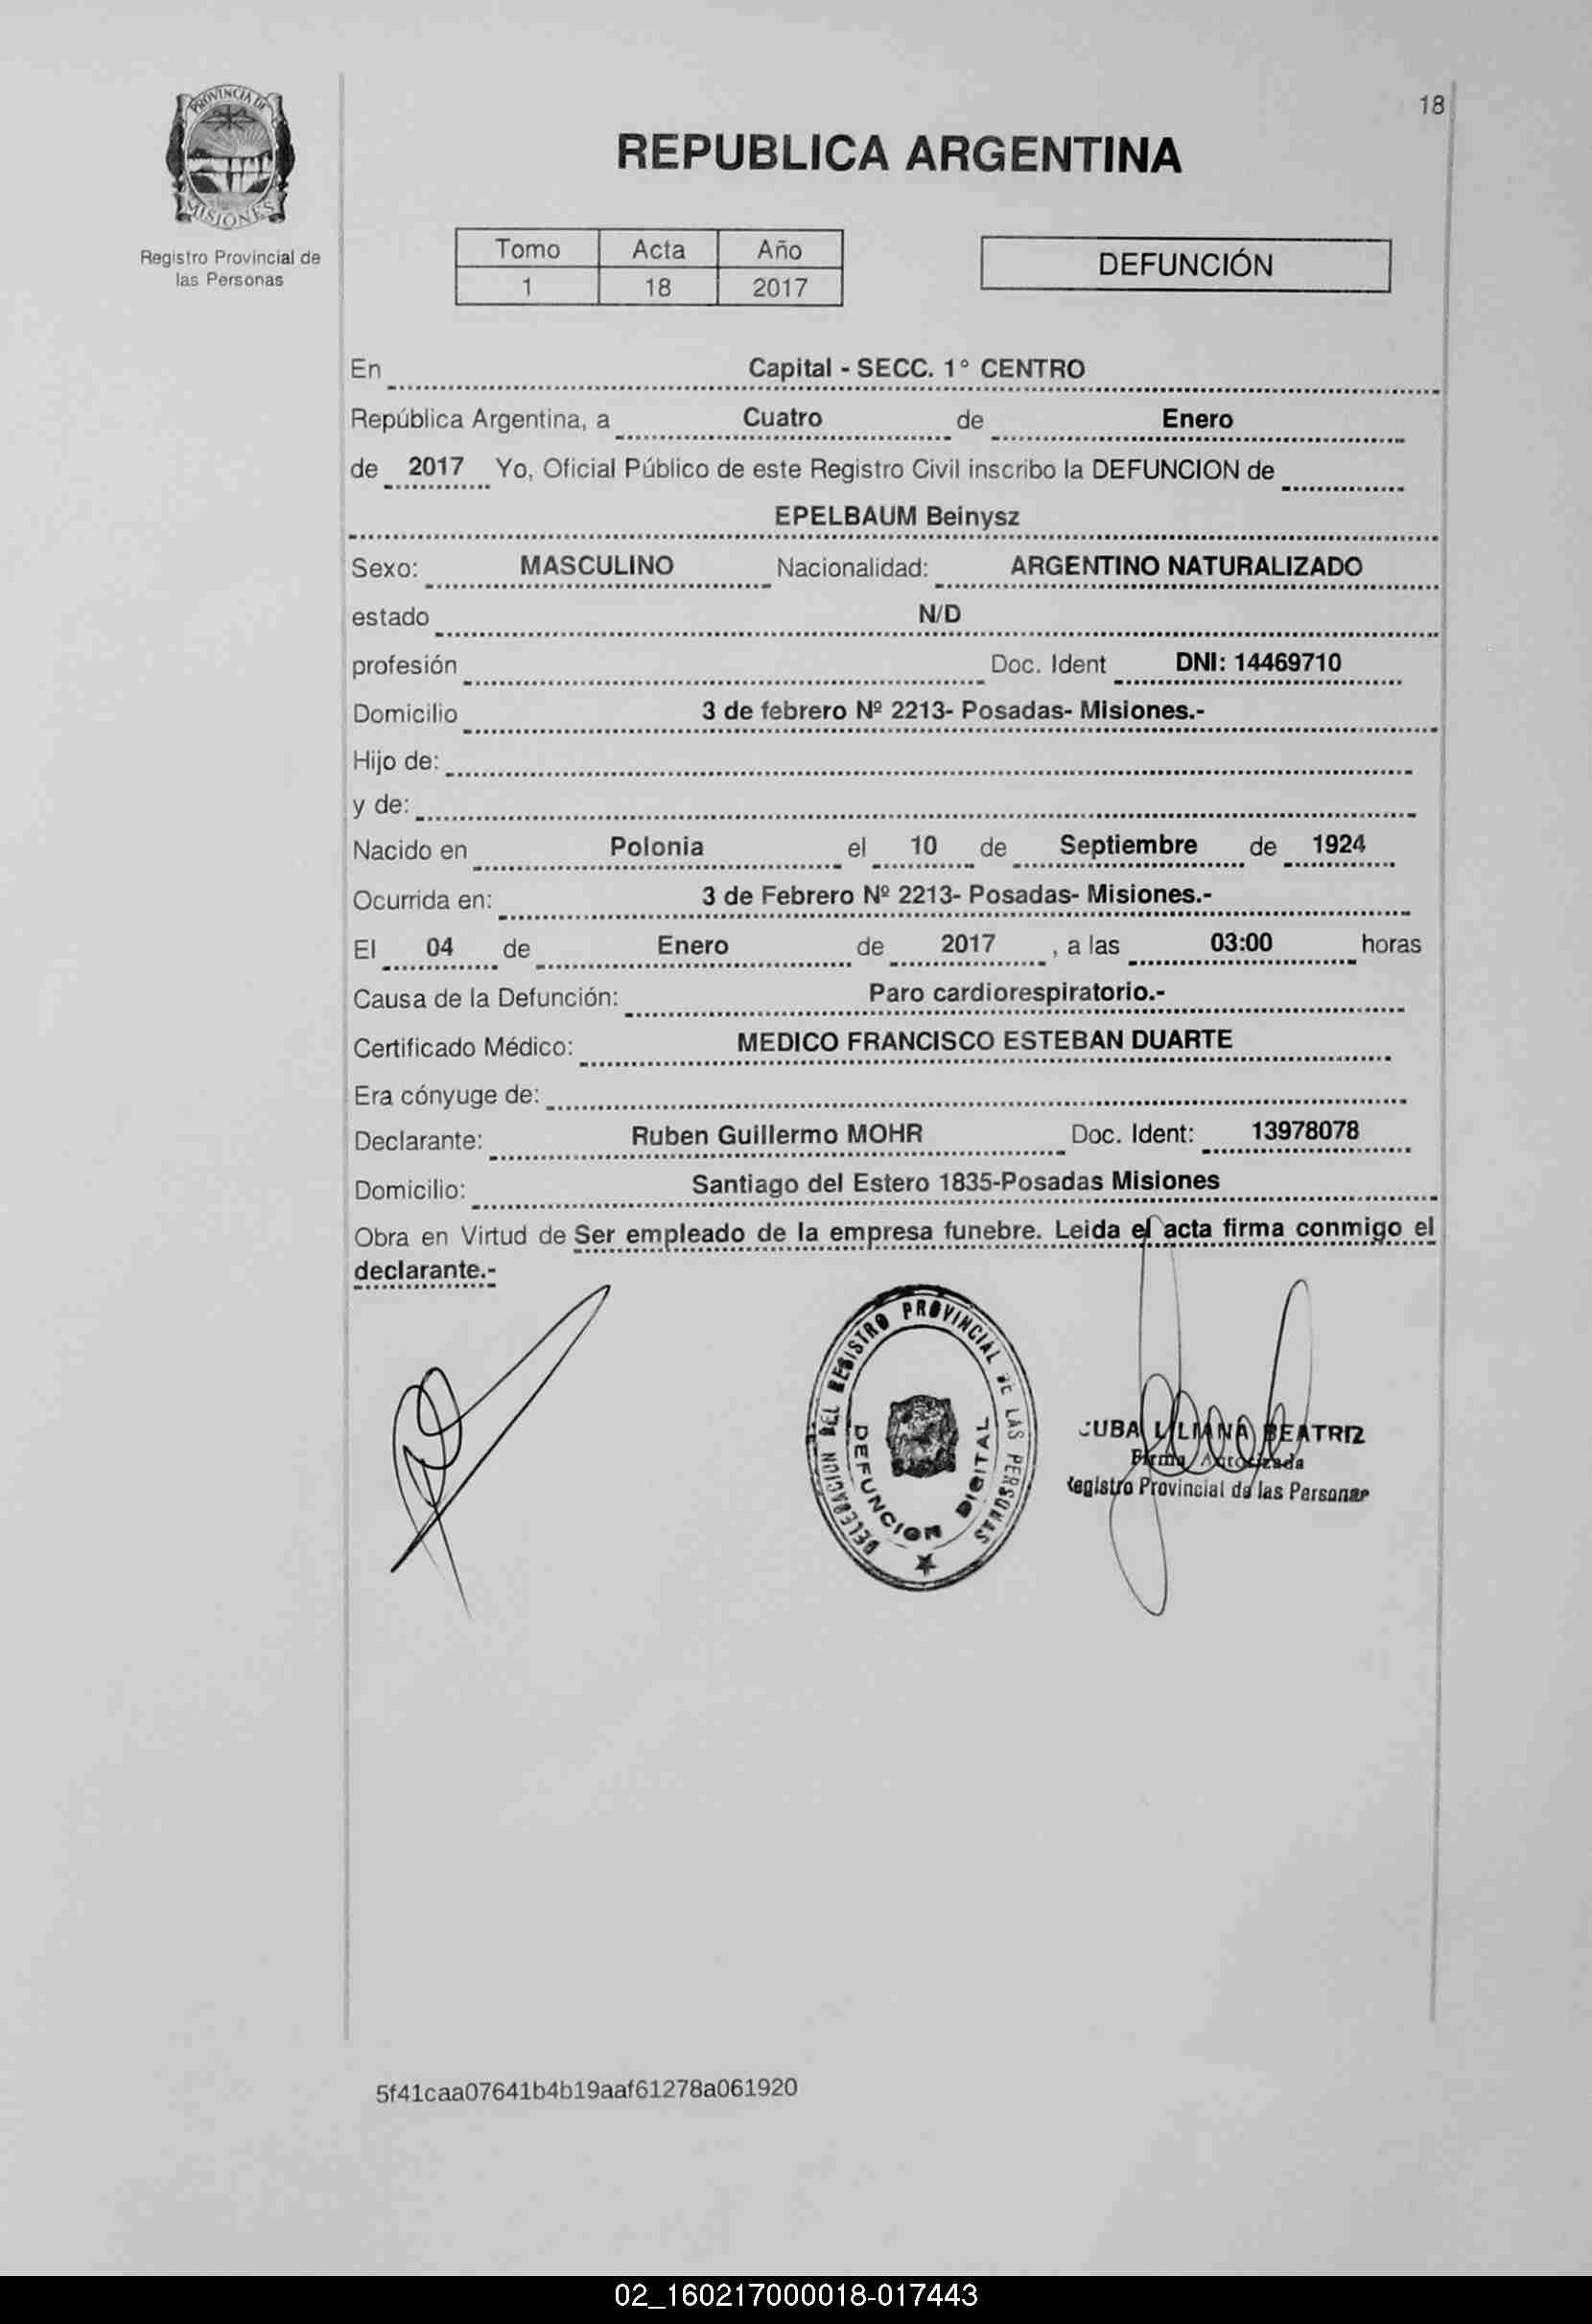 PROVINCIA DE
MISIONES
Registro Provincial de
las Personas
18
REPUBLICA ARGENTINA
Tomo Acta Año
1 18 2017
DEFUNCIÓN
En Capital - SECC. 1° CENTRO
República Argentina, a Cuatro de Enero
de 2017 Yo, Oficial Público de este Registro Civil inscribo la DEFUNCION de
EPELBAUM Beinysz
Sexo: MASCULINO Nacionalidad: ARGENTINO NATURALIZADO
estado N/D
profesión Doc. Ident DNI: 14469710
Domicilio 3 de febrero Nº 2213- Posadas- Misiones.-
Hijo de:
y de:
Nacido en Polonia el 10 de Septiembre de 1924
Ocurrida en: 3 de Febrero Nº 2213- Posadas- Misiones.-
El 04 de Enero de 2017 , a las 03:00 horas
Causa de la Defunción: Paro cardiorespiratorio.-
Certificado Médico: MEDICO FRANCISCO ESTEBAN DUARTE
Era cónyuge de:
Declarante: Ruben Guillermo MOHR Doc. Ident: 13978078
Domicilio: Santiago del Estero 1835-Posadas Misiones
Obra en Virtud de Ser empleado de la empresa funebre. Leida el acta firma conmigo el
declarante.-
DELEGACION DEL REGISTRO PROVINCIAL DE LAS PERSONAS
DEFUNCION DIGITAL
CUBA LILIANA BEATRIZ
Firma Autorizada
Registro Provincial de las Personas
5f41caa07641b4b19aaf61278a061920
02_160217000018-017443